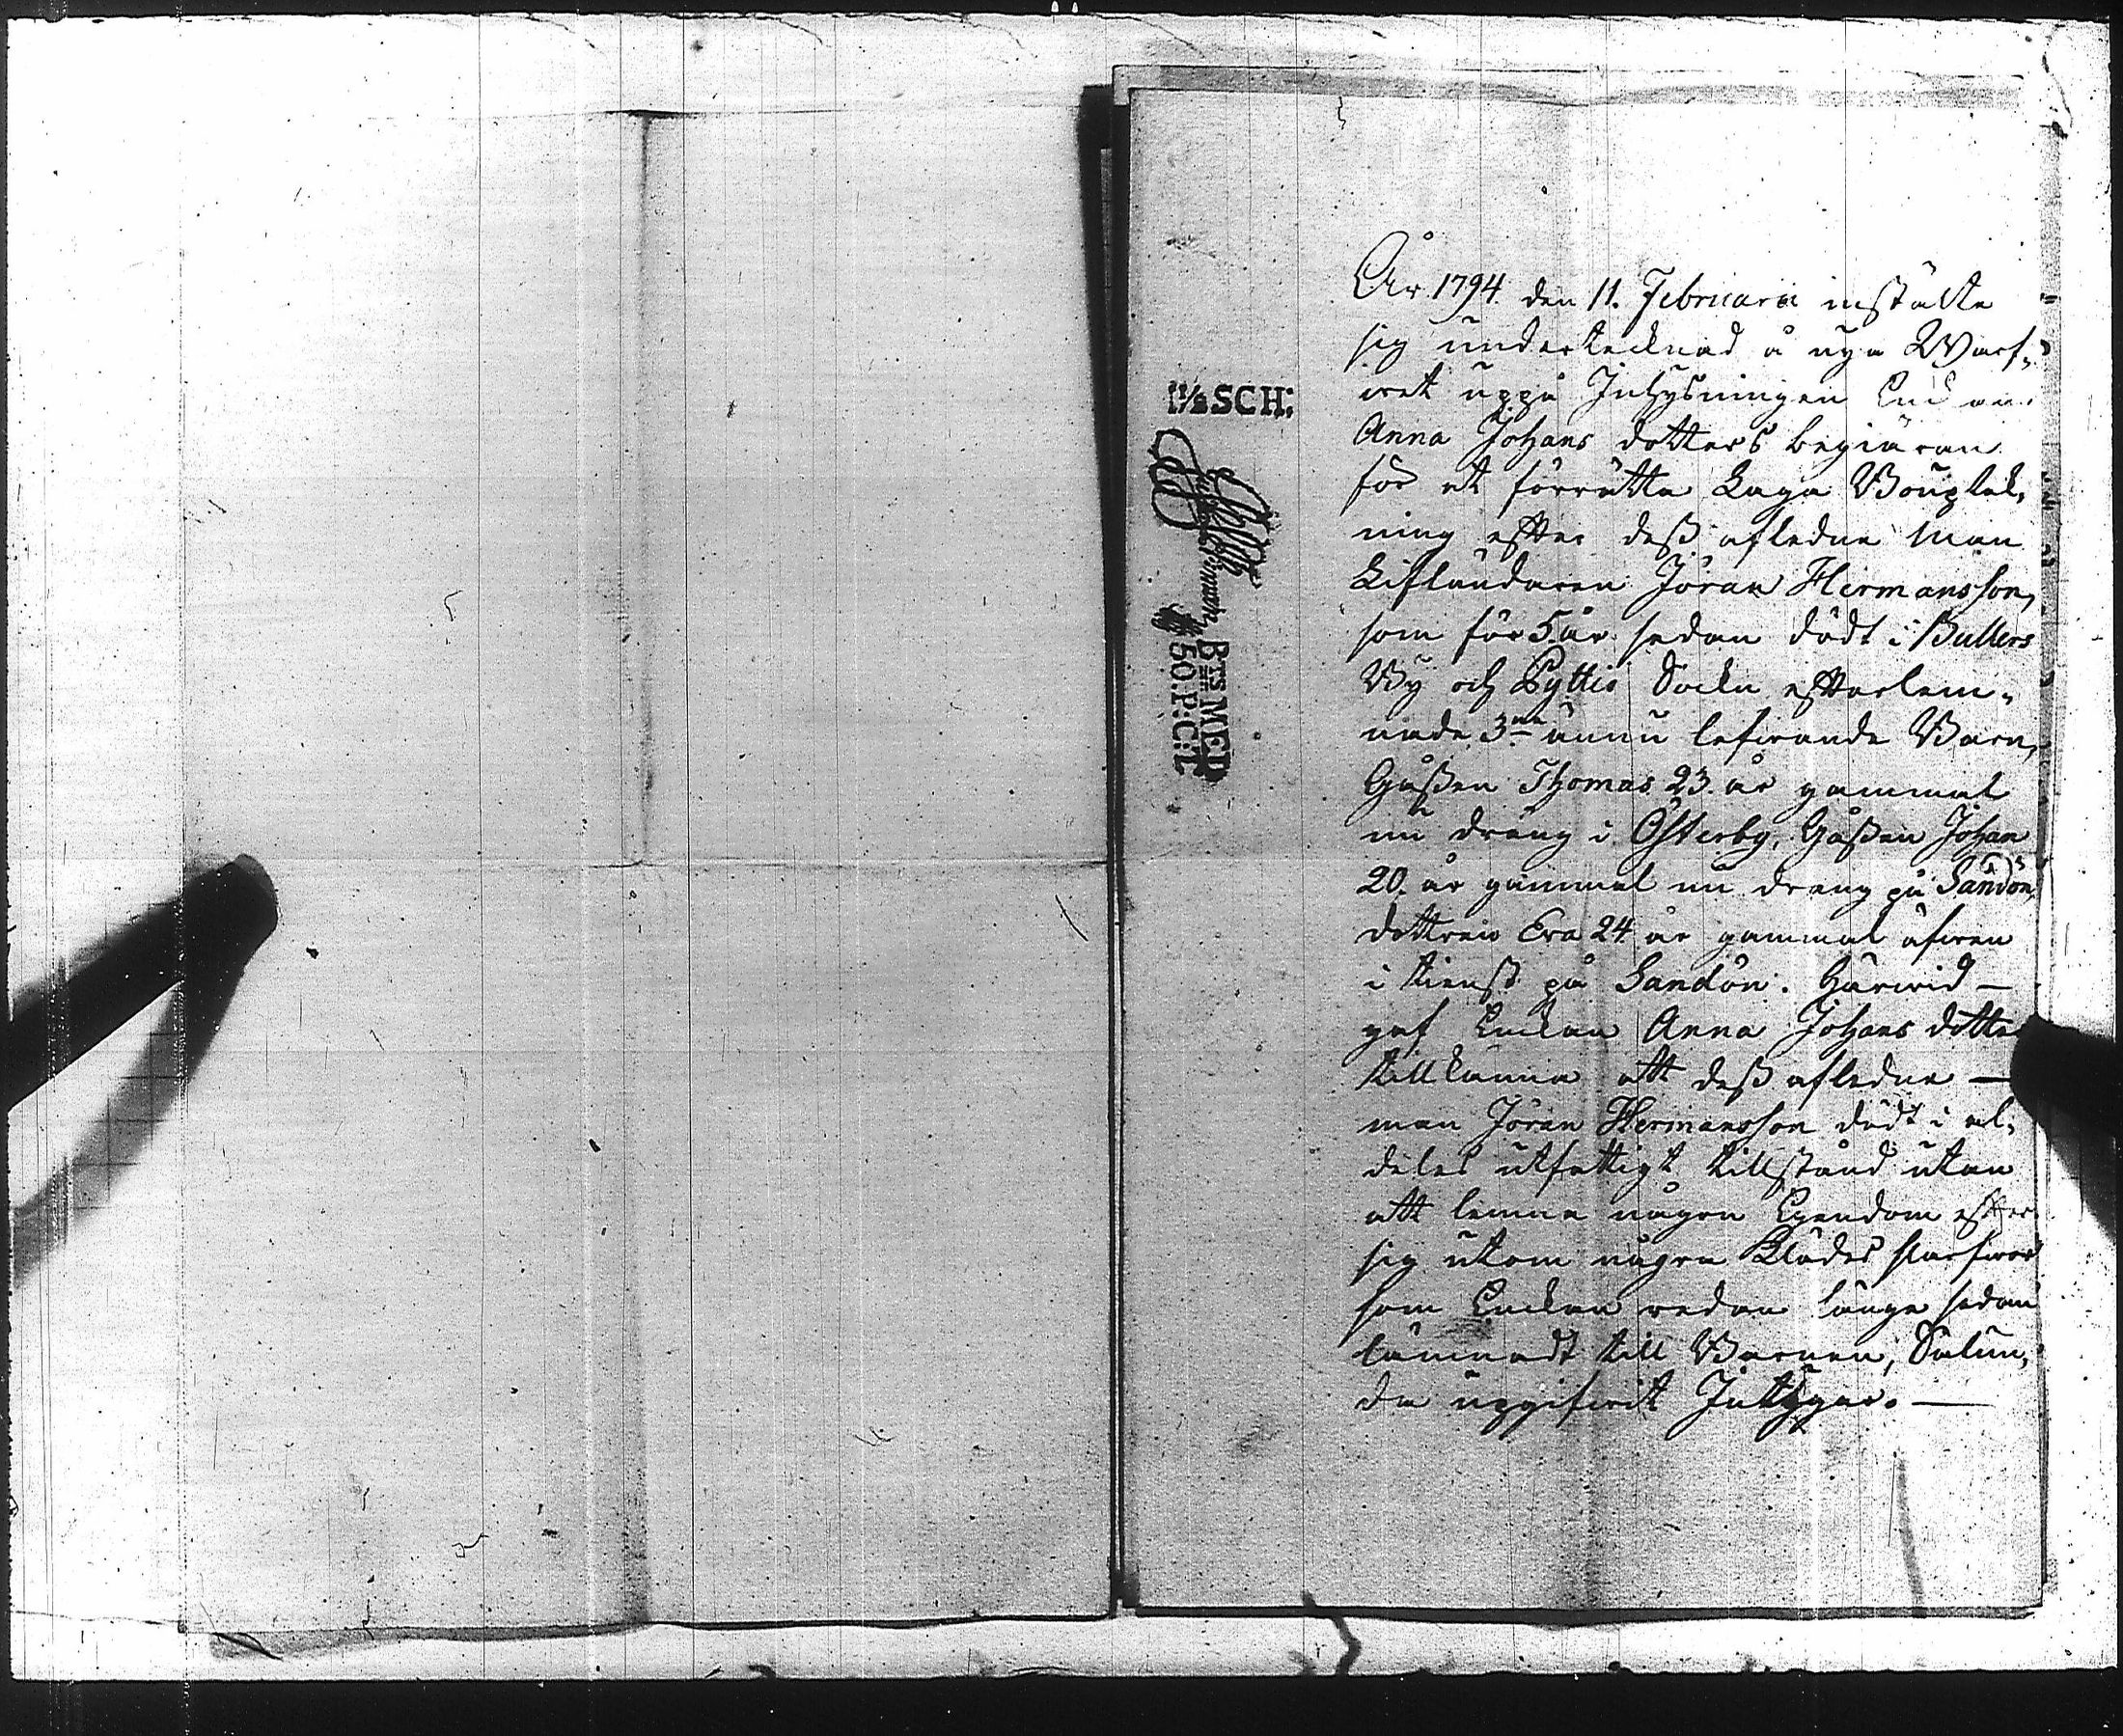 1½ SCH:
BTS MED
50. P: C:T
År 1794 den 11. Februarii instälte
sig undertecknad å nya Warf„
wet uppå Inhysningen Enckan
Anna Johans dotters begiäran
för at förrätta Laga Bouptek„
ning efter dess afledne Man
Lifländaren Jöran Hermansson,
som för 5. år sedan dödt i Bullers
By och Pyttis Sockn efterlem„
nade 3ne ännu lefwande Barn,
Gåssen Thomas 23. år gammal
nu dräng i Österby, Gåssen Johan
20. år gammal nu dräng på Sandön,
dottren Eva 24 år gammal äfwen
i tienst på Sandön. Härwid —
gaf Enckan Anna Johans dotter
tillkänna att dess afledne —
man Jöran Hermansson dödt i al„
deles utfattigt tillstånd utan
att lemna någon Egendom efter
sig utom någre Klädes slarfwor
som Enckan redan länge sedan
lämnadt till Barnen, Sålun„
da uppgifwit Intygar. —